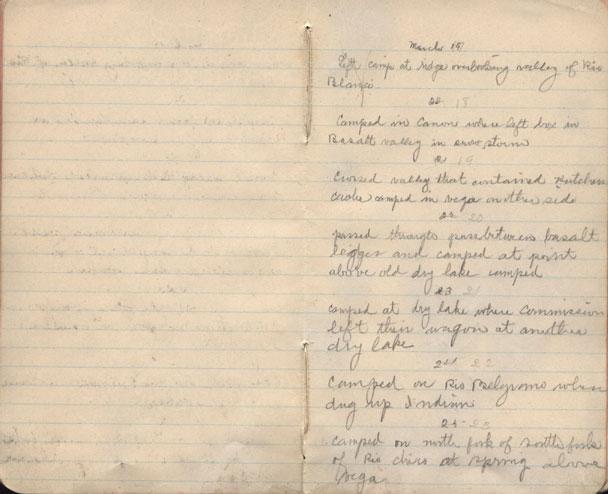 March 17
left camp at ridge overlooking valley of Rio
Blanco
18
Camped in Canon where left box in
Basalt valley in snow storm
19
Crossed valley that contained
camped in vega on other side
22 20
passed through pass between basalt
ledges and camped at point
above old dry lake camped
23 21
camped at dry lake where Commission
left their wagon at another
dry lake
24 22
Camped on Rio Belgrano where
dug up Indian
25 23
camped on north fork of south fork
of Rio Chico at spring above
Vega